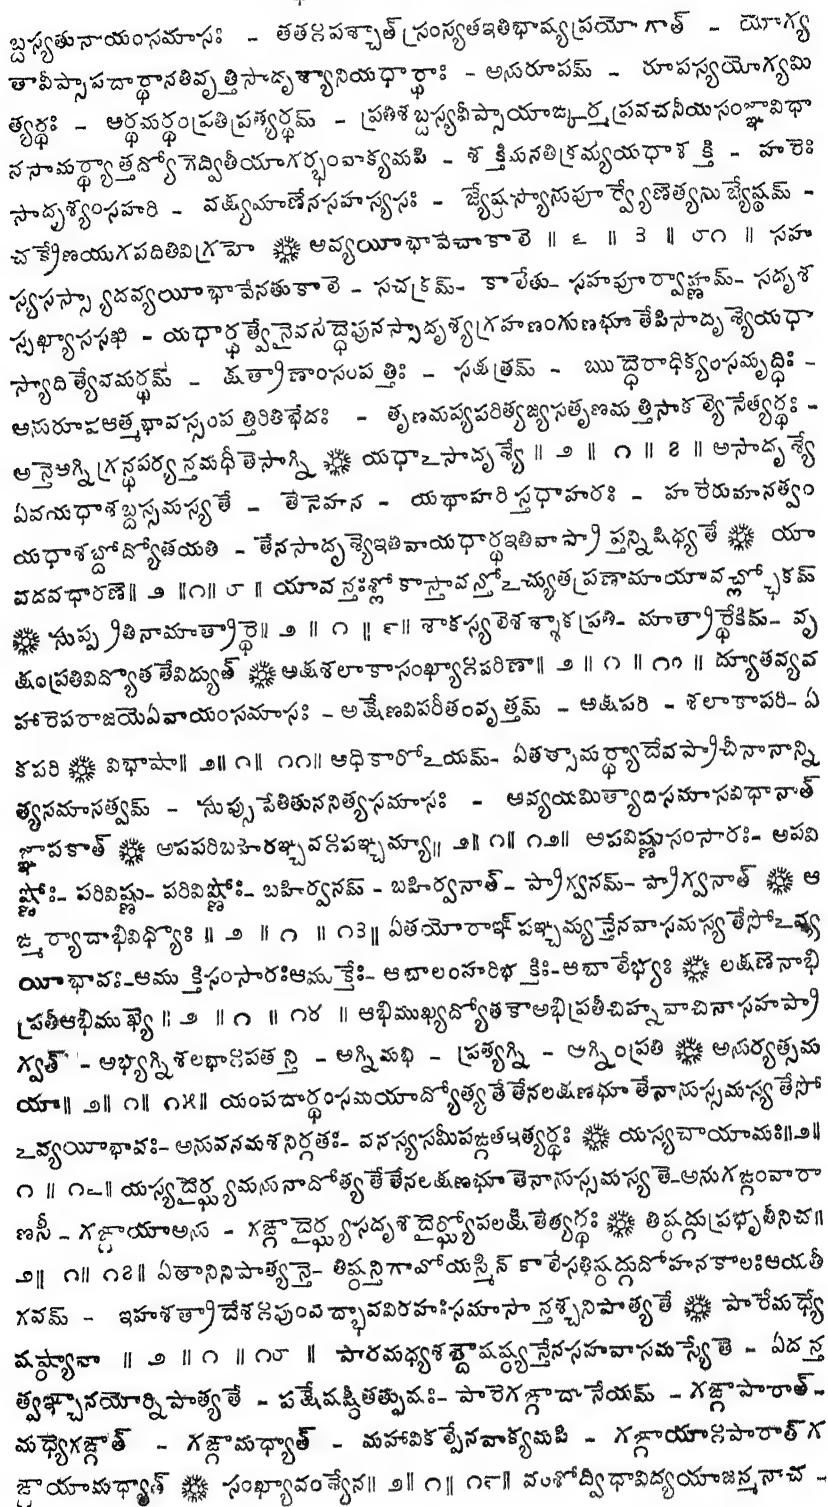 బ్దస్యతునాయంసమాసః - తతఃపశ్చాత్ స్రంస్యతఇతిభాష్యప్రయోగాత్ - యోగ్య
తావీప్సాపదార్థానతివృత్తిసాదృశ్యానియథార్థాః - అనురూపమ్ - రూపస్యయోగ్యమి
త్యర్థః - అర్థమర్థంప్రతిప్రత్యర్థమ్ - ప్రతిశబ్దస్యవీప్సాయాఙ్కర్మప్రవచనీయసంజ్ఞావిధా
నసామర్థ్యాత్తద్యోగెద్వితీయాగర్భంవాక్యమపి - శక్తిమనతిక్రమ్యయథాశక్తి - హరెః
సాదృశ్యంసహరి - వక్ష్యమాణేనసహస్యసః - జ్యేష్ఠస్యానుపూర్వ్యేణెత్యనుజ్యేష్ఠమ్ -
చక్రేణయుగపదితివిగ్రహె ❋ అవ్యయీభావేచాకాలె ॥ ౬ ॥ ౩ ॥ ౮౧ ॥ సహ
స్యసస్స్యాదవ్యయీభావేనతుకాలె - సచక్రమ్- కాలేతు- సహపూర్వాహ్ణమ్- సదృశ
స్సఖ్యాససఖి - యథార్థత్వేనైవసిద్ధెపునస్సాదృశ్యగ్రహణంగుణభూతేపిసాదృశ్యెయథా
స్యాదిత్యేవమర్థమ్ - క్షత్రాణాంసంపత్తిః - సక్షత్రమ్ - ఋద్ధెరాధిక్యంసమృద్ధిః -
అనురూపఆత్మభావస్సంపత్తిరితిభేదః - తృణమప్యపరిత్యజ్యసతృణమత్తిసాకల్యెనేత్యర్థః -
అన్తెఅగ్నిగ్రన్థపర్యన్తమధీతెసాగ్ని ❋ యథాఽసాదృశ్యే ॥ ౨ ॥ ౧ ॥ ౭ ॥ అసాదృశ్యే
ఏవయథాశబ్దస్సమస్యతే - తేనెహన - యథాహరిస్తథాహరః - హరేరుపమానత్వం
యథాశబ్దోద్యోతయతి - తేనసాదృశ్యెఇతివాయథార్థఇతివాప్రాప్తన్నిషిధ్యతే ❋ యా
వదవధారణె॥ ౨ ॥౧॥ ౮ ॥ యావన్తఃశ్లోకాస్తావన్తోఽచ్యుతప్రణామాయావచ్ఛ్లోకమ్
❋ సుప్ప్రతినామాత్రార్థె॥ ౨ ॥ ౧ ॥ ౯॥ శాకస్యలెశశ్శాకప్రతి- మాత్రార్థేకిమ్- వృ
క్షంప్రతివిద్యోతతేవిద్యుత్ ❋ అక్షశలాకాసంఖ్యాఃపరిణా॥ ౨ ॥ ౧ ॥ ౧౦ ॥ ద్యూతవ్యవ
హారెపరాజయెఏవాయంసమాసః - అక్షేణవిపరీతంవృత్తమ్ - అక్షపరి - శలాకాపరి- ఏ
కపరి ❋ విభాషా॥ ౨॥ ౧॥ ౧౧॥ అధికారోఽయమ్- ఏతత్సామర్థ్యాదేవప్రాచీనానాన్ని
త్యసమాసత్వమ్ - సుప్సుపేతితుననిత్యసమాసః - అవ్యయమిత్యాదిసమాసవిధానాత్
జ్ఞాపకాత్ ❋ అపపరిబహిరఞ్చవఃపఞ్చమ్యా॥ ౨॥ ౧॥ ౧౨॥ అపవిష్ణుసంసారః- అపవి
ష్ణోః- పరివిష్ణు- పరివిష్ణోః- బహిర్వనమ్ - బహిర్వనాత్- ప్రాగ్వనమ్- ప్రాగ్వనాత్ ❋ ఆ
ఙ్మర్యాదాభివిధ్యోః ॥ ౨ ॥ ౧ ॥ ౧౩॥ ఏతయోరాఙ్పఞ్చమ్యన్తేనవాసమస్యతేసోఽవ్య
యీభావః-ఆముక్తిసంసారఃఆముక్తేః- ఆబాలంహరిభక్తిః-ఆబాలేభ్యః ❋ లక్షణెనాభి
ప్రతీఆభిముఖ్యె॥ ౨ ॥ ౧ ॥ ౧౪ ॥ ఆభిముఖ్యద్యోతకాఅభిప్రతీచిహ్నవాచినాసహప్రా
గ్వత్ - అభ్యగ్నిశలభాఃపతన్తి - అగ్నిమభి - ప్రత్యగ్ని - అగ్నింప్రతి ❋ అనుర్యత్సమ
యా॥ ౨॥ ౧॥ ౧౫॥ యంపదార్థంసమయాద్యోత్యతేతేనలక్షణభూతేనానుస్సమస్యతేసో
ఽవ్యయీభావః- అనువనమశనిర్గతః- వనస్యసమీపఙ్గతఇత్యర్థః ❋ యస్యచాయామః॥౨॥
౧ ॥ ౧౬॥ యస్యదైర్ఘ్యమనునాద్యోత్యతేతేనలక్షణభూతెనానుస్సమస్యతె-అనుగఙ్గంవారా
ణసీ - గఙ్గాయాఅను - గఙ్గాదైర్ఘ్యసదృశదైర్ఘ్యోపలక్షితేత్యర్థః ❋ తిష్ఠద్గుప్రభృతీనిచ॥
౨॥ ౧॥ ౧౭॥ ఏతానినిపాత్యన్తె- తిష్ఠన్తిగావోయస్మిన్ కాలేసతిష్ఠద్గుదోహనకాలఃఆయతీ
గవమ్ - ఇహశత్రాదేశఃపుంవద్భావవిరహఃసమాసాన్తశ్చనిపాత్యతే ❋ పారేమధ్యే
షష్ఠ్యావా ॥ ౨ ॥ ౧ ॥ ౧౮ ॥ పారమధ్యశబ్దౌషష్ఠ్యన్తేనసహవాసమస్యేతె - ఏదన్త
త్వఞ్చానయోర్నిపాత్యతే - పక్షేషష్ఠీతత్పురుషః- పారెగఙ్గాదానేయమ్ - గఙ్గాపారాత్-
మధ్యెగఙ్గాత్ - గఙ్గామధ్యాత్ - మహావికల్పేనవాక్యమపి - గఙ్గాయాఃపారాత్ గ
ఙ్గాయామధ్యాత్ ❋ సంఖ్యావంశ్యేన॥ ౨॥ ౧॥ ౧౯॥ వంశోద్విధావిద్యయాజన్మనాచ -